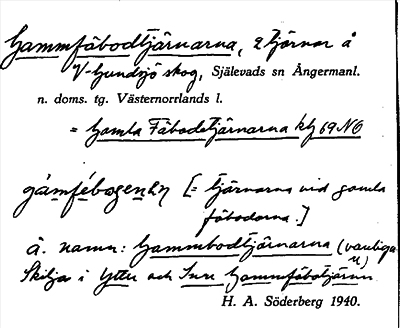 Gammfäbodtjärnarna, 2 tjärnar å
V-Gundsjö skog, Själevads sn Ångermanl.
n. doms. tg. Västernorrlands l.
= Gamla Fäbodtjärnarna kbl 69 NO
[= tjärnarna vid gamla
fäbodarna.]
å. namn: Gammbodtjärnarna (vanliga
n)
Skilja i Yttre och Inre Gammfäbotjärnen
H. A. Söderberg 1940.